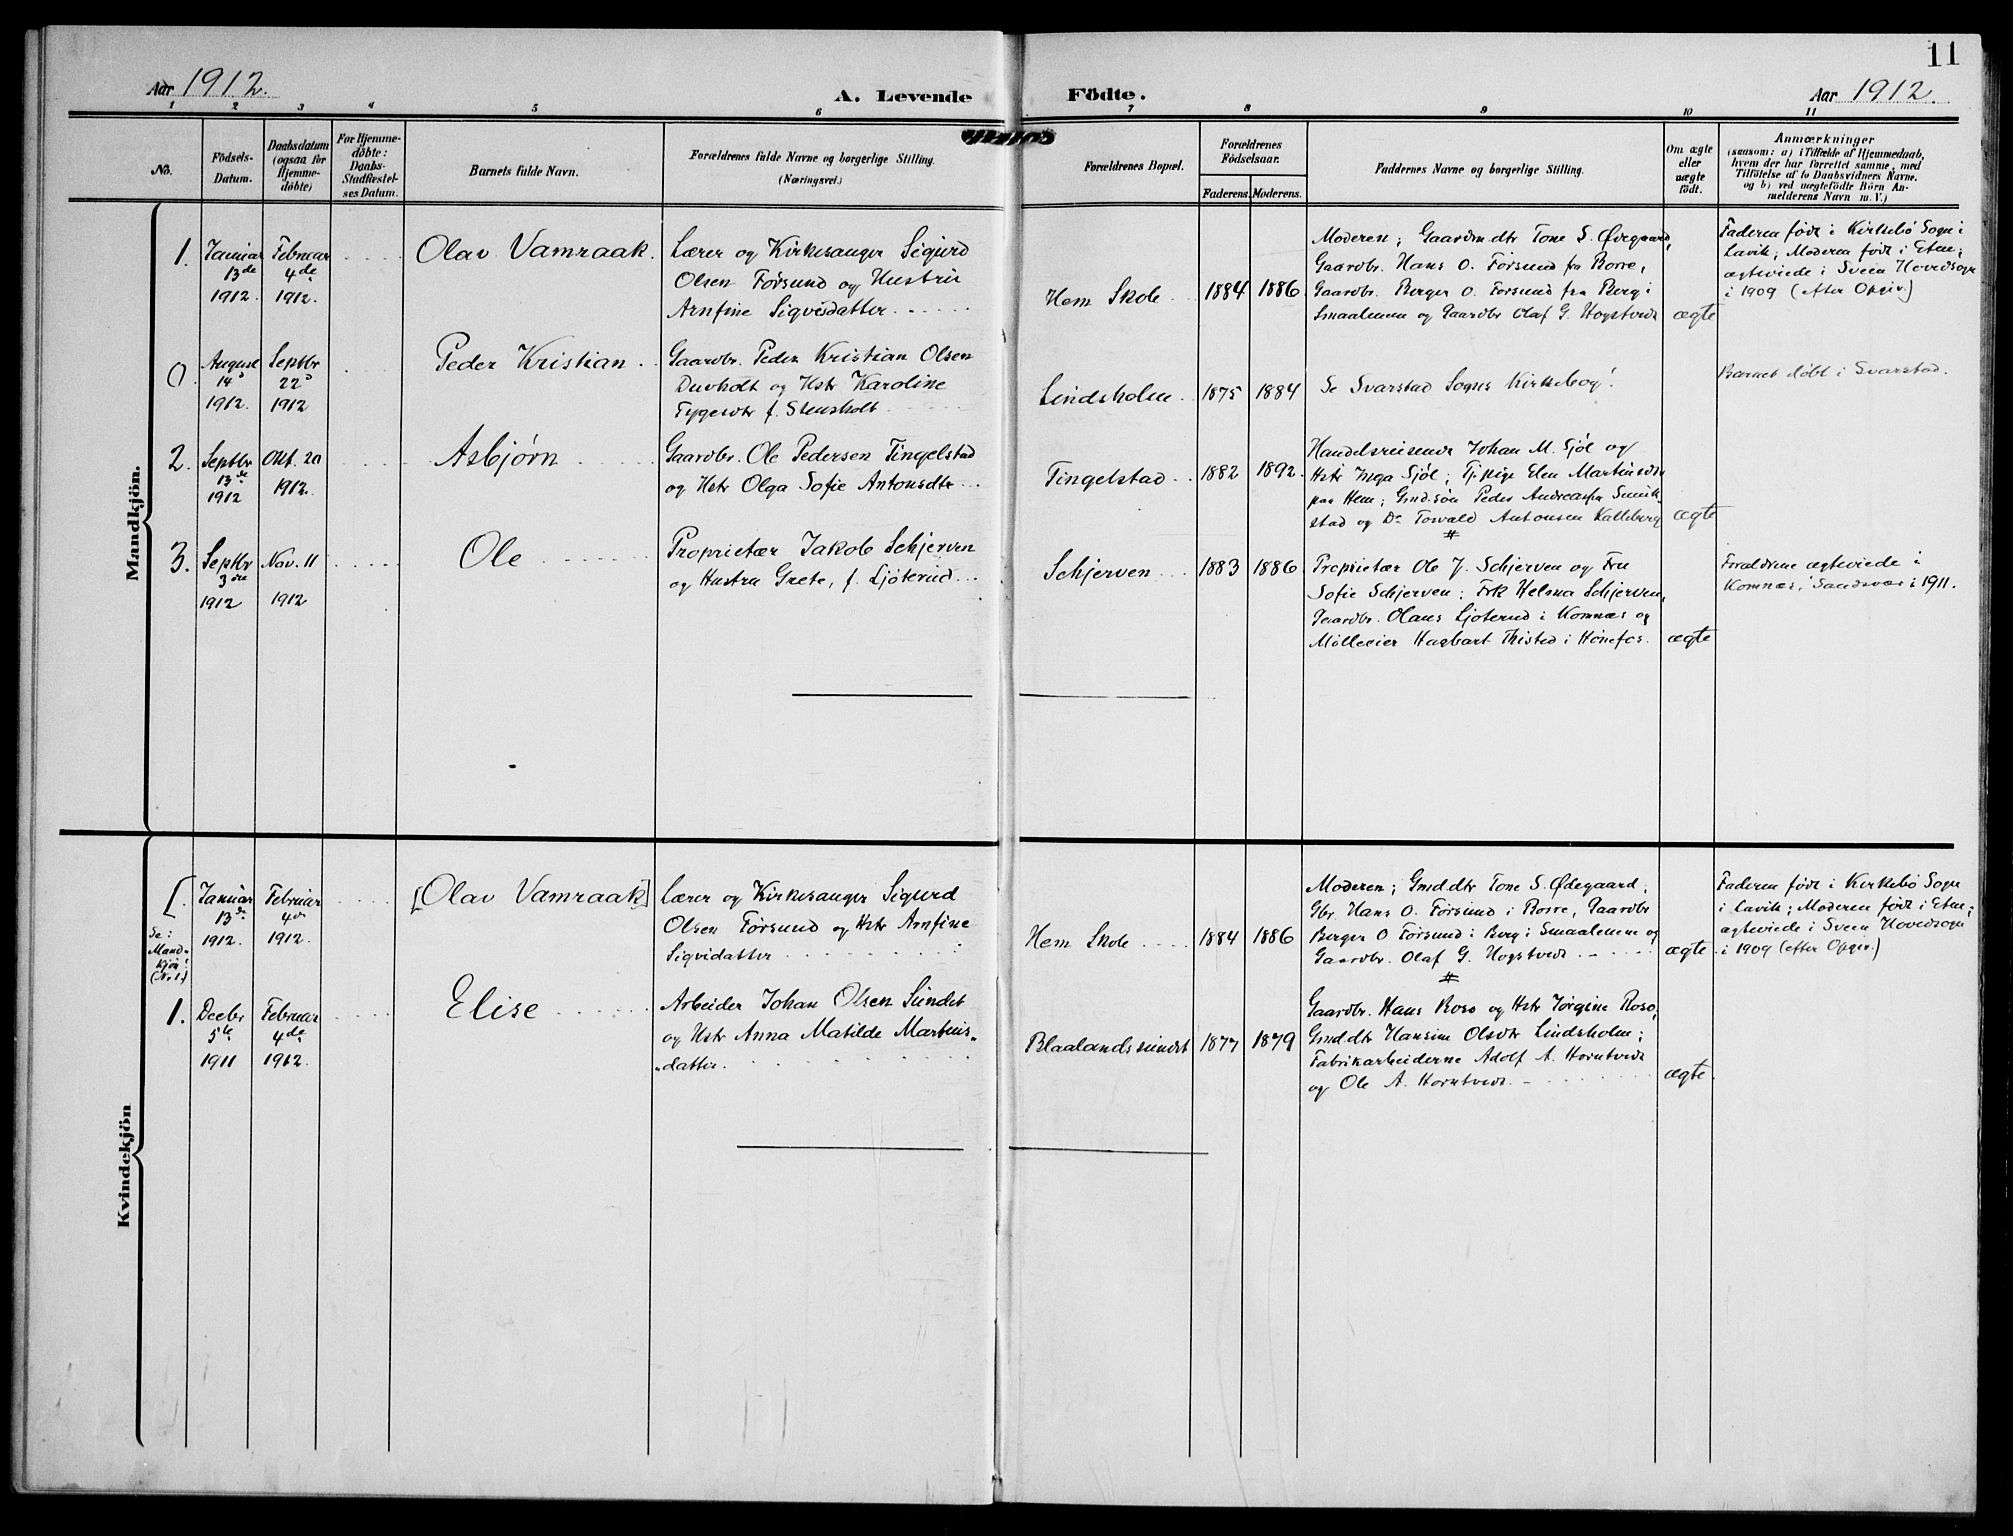 11
Aar 1912.
A. Levende Födte.
Aar 1912.
1 2 3 4 5 6 7 8 9 10 11
No.
Födsels-
Datum.
Daabsdatum
(ogsaa for
Hjemme-
döbte)
For Hjemme-
döbte:
Daabs-
Stadfæstel-
ses Datum.
Barnets fulde Navn.
Forældrenes fulde Navne og borgerlige Stilling.
(Næringsvei.)
Forældrenes Bopæl.
Forældrenes
Födselsaar.
Faderens. Moderens.
Faddernes Navne og borgerlige Stilling.
Om ægte
eller
uægte
födt.
Anmærkninger
(saasom: a) i Tilfælde af Hjemmedaab,
hvem der har forrettet samme, med
Tilföielse af to Daabsvidners Navne,
og b) ved uægtefödte Börn An-
melderens Navn m. V.)
Mandkjön.
1.
Januar
13de
1912.
Februar
4de
1912.
Olav Vamraak.
Lærer og Kirkesanger Sigurd
Olsen Førsund og Hustru
Arnfine Sigvesdatter
Hem Skole
1884
1886
Moderen; Gaardm.dtr Tone S. Ødegaard,
Gaardbr. Hans O. Førsund fra Borre,
Gaardbr. Berger O. Forsund fra Berg i
Smaalenene og Gaardbr Olaf G. Hogstvedt
ægte
Faderen født i Kirkebö Sogn i
Lavik; Moderen født i Etne;
ægteviede i Sveen Hovedsogn
i 1909 (efter Opgiv.)
0.
August
14de
1912.
Septbr
22d
1912
Peder Kristian
Gaardbr. Peder Kristian Olsen
Duvholt og Hstr Karoline
Tygesdtr f. Stensholt
Lindsholm
1875
1884
Se Svarstad Sogns Kirkebog!
Barnet døbt i Svarstad.
2.
Septbr
13de
1912
Okt. 20
1912.
Asbjørn
Gaardbr. Ole Pedersen Tingelstad
og Hstr Olga Sofie Antonsdtr
Tingelstad
1882
1892.
Handelsreisende Johan M. Sjöl og
Hstr Inga Sjöl; Tj.pige Elen Martinsdtr
paa Hem; Gmd.søn Peder Andreas fra
stad og Do Torvald Antonsen Kalleberg
ægte
3.
Septbr
3die
1912
Nov. 11
1912
Ole
Proprietær Jakob Schjerven
og Hustru Grete, f. Ljöterud
Schjerven
1883
1886
Proprietær Ole J. Schjerven og Fru
Sofie Schjerven; Frk Helma Schjerven,
Gaardbr. Olaus Ljöterud i Komnæs og
Mölleeier Hagbart Thistad i Hönefos.
ægte
Forældrene ægteviede i
Komnæs, Sandsvær i 1911.
Kvindekjön
[.
Se:
Mand-
kjön
(No 1.)
Januar
13de
1912.
Februar
4de
1912.
[Olav Vamraak]
Lærer og Kirkesanger Sigurd
Olsen Førsund og Hstr Arnfine
Sigvidatter
Hem Skole
1884
1886
Moderen; Gmd.dtr Tone S. Ødegaard;
Gbr. Hans O. Førsund i Borre, Gaardbr
Berger O Førsund i Berg i Smaalenene og
Gaardbr. Olaf G. Hogstvedt
ægte
Faderen født i Kirkebø Sogn
i Lavik; Moderen født i Etne;
ægteviede i Sveen Hovedsogn
i 1909 (efter Opgiv.)
1.
Decbr
5te
1911
Februar
4de
1912.
Elise
Arbeider Johan Olsen Sundet
og Hstr Anna Matilde Martins-
datter.
Blaalandssundet
1877
1879
Gaardbr. Hans Roso og Hstr Jørgine Roso,
Gmd.dtr Hansine Olsdtr Lindsholm;
Fabrikarbeiderne Adolf A. Horntvedt
og Ole A. Horntvedt.
ægte.